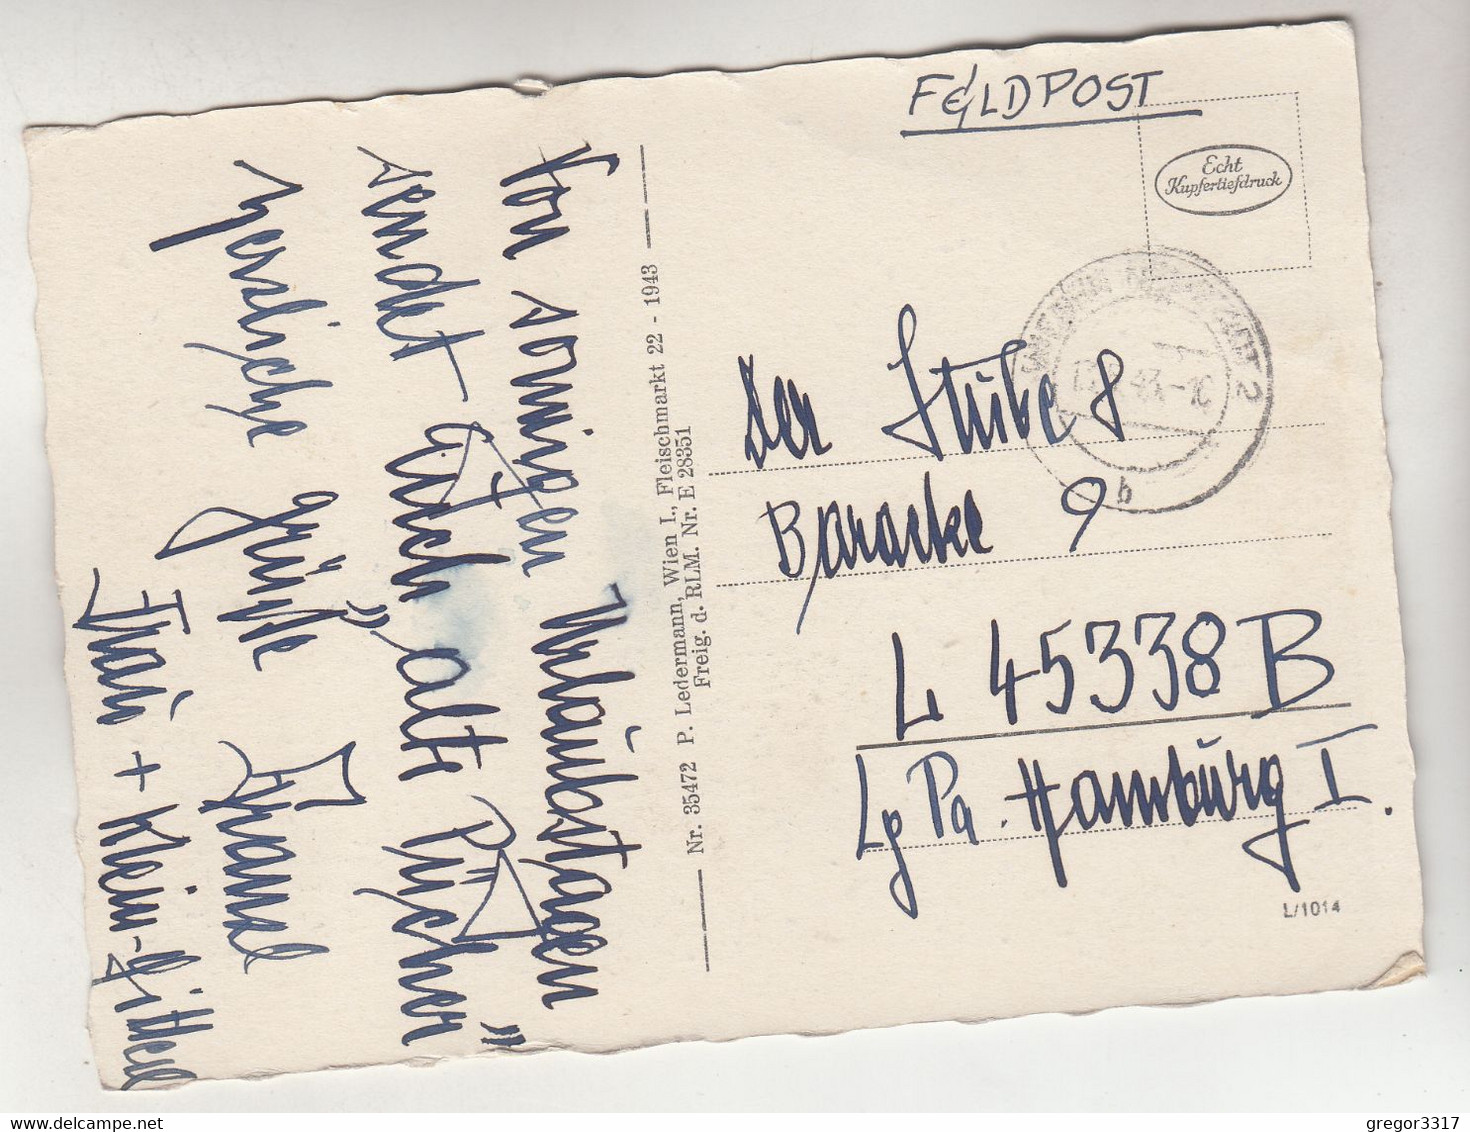 FELDPOST
Echt
Kupfertiefdruck
2
b
Der Stube 8
Baracke 9
L 45338 B
Lg Pa. Hamburg I.
L/1014
Nr. 35472 P. Ledermann, Wien I., Fleischmarkt 22 - 1943
Freig. d. RLM. Nr. E 28351
Von sonnigen Urlaubstagen
sendet Euch „alte
herzliche Grüße
Frau + Klein-
gregor3317